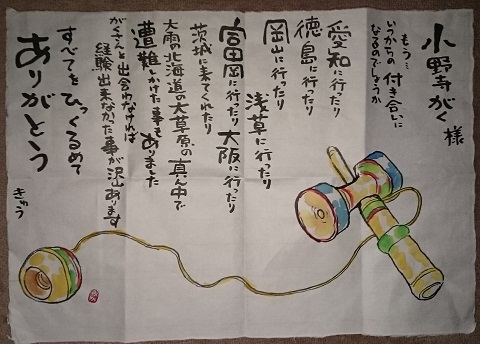 小野寺がく 様
もう…
いつからの付き合いに
なるのでしょうか
愛知に行たり
徳島に行ったり
岡山に行ったり
浅草に行ったり
富岡に行ったり 大阪に行ったり
茨城に来てくれたり
大雨の北海道の大草原の真ん中で
遭難しかけた事もありました
がくさんと出合わなければ
経験出来なかった事が沢山あります
すべてをひっくるめて
ありがとう
きゅう